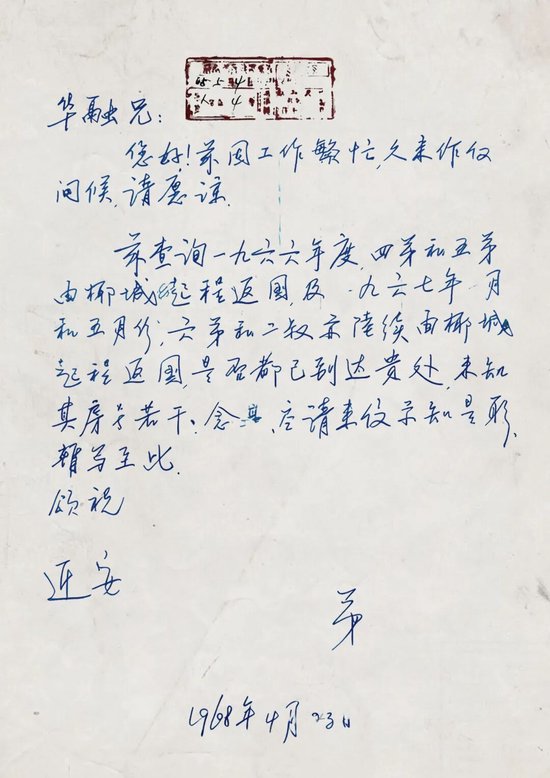 68.5.4
4
华融兄：
您好！弟因工作繁忙，久未作仅
问候，请愿谅．
弟查询一九六六年度，四弟和五弟
由椰城起程返国，及一九六七年一月
和五月份，六弟和二叔亦陆续由椰城
起程返国，是否都已到达贵处，未知
其房号若干：念 ，请来信示知是盼，
暂写至此．
颂祝
近安
弟
1968年4月23日